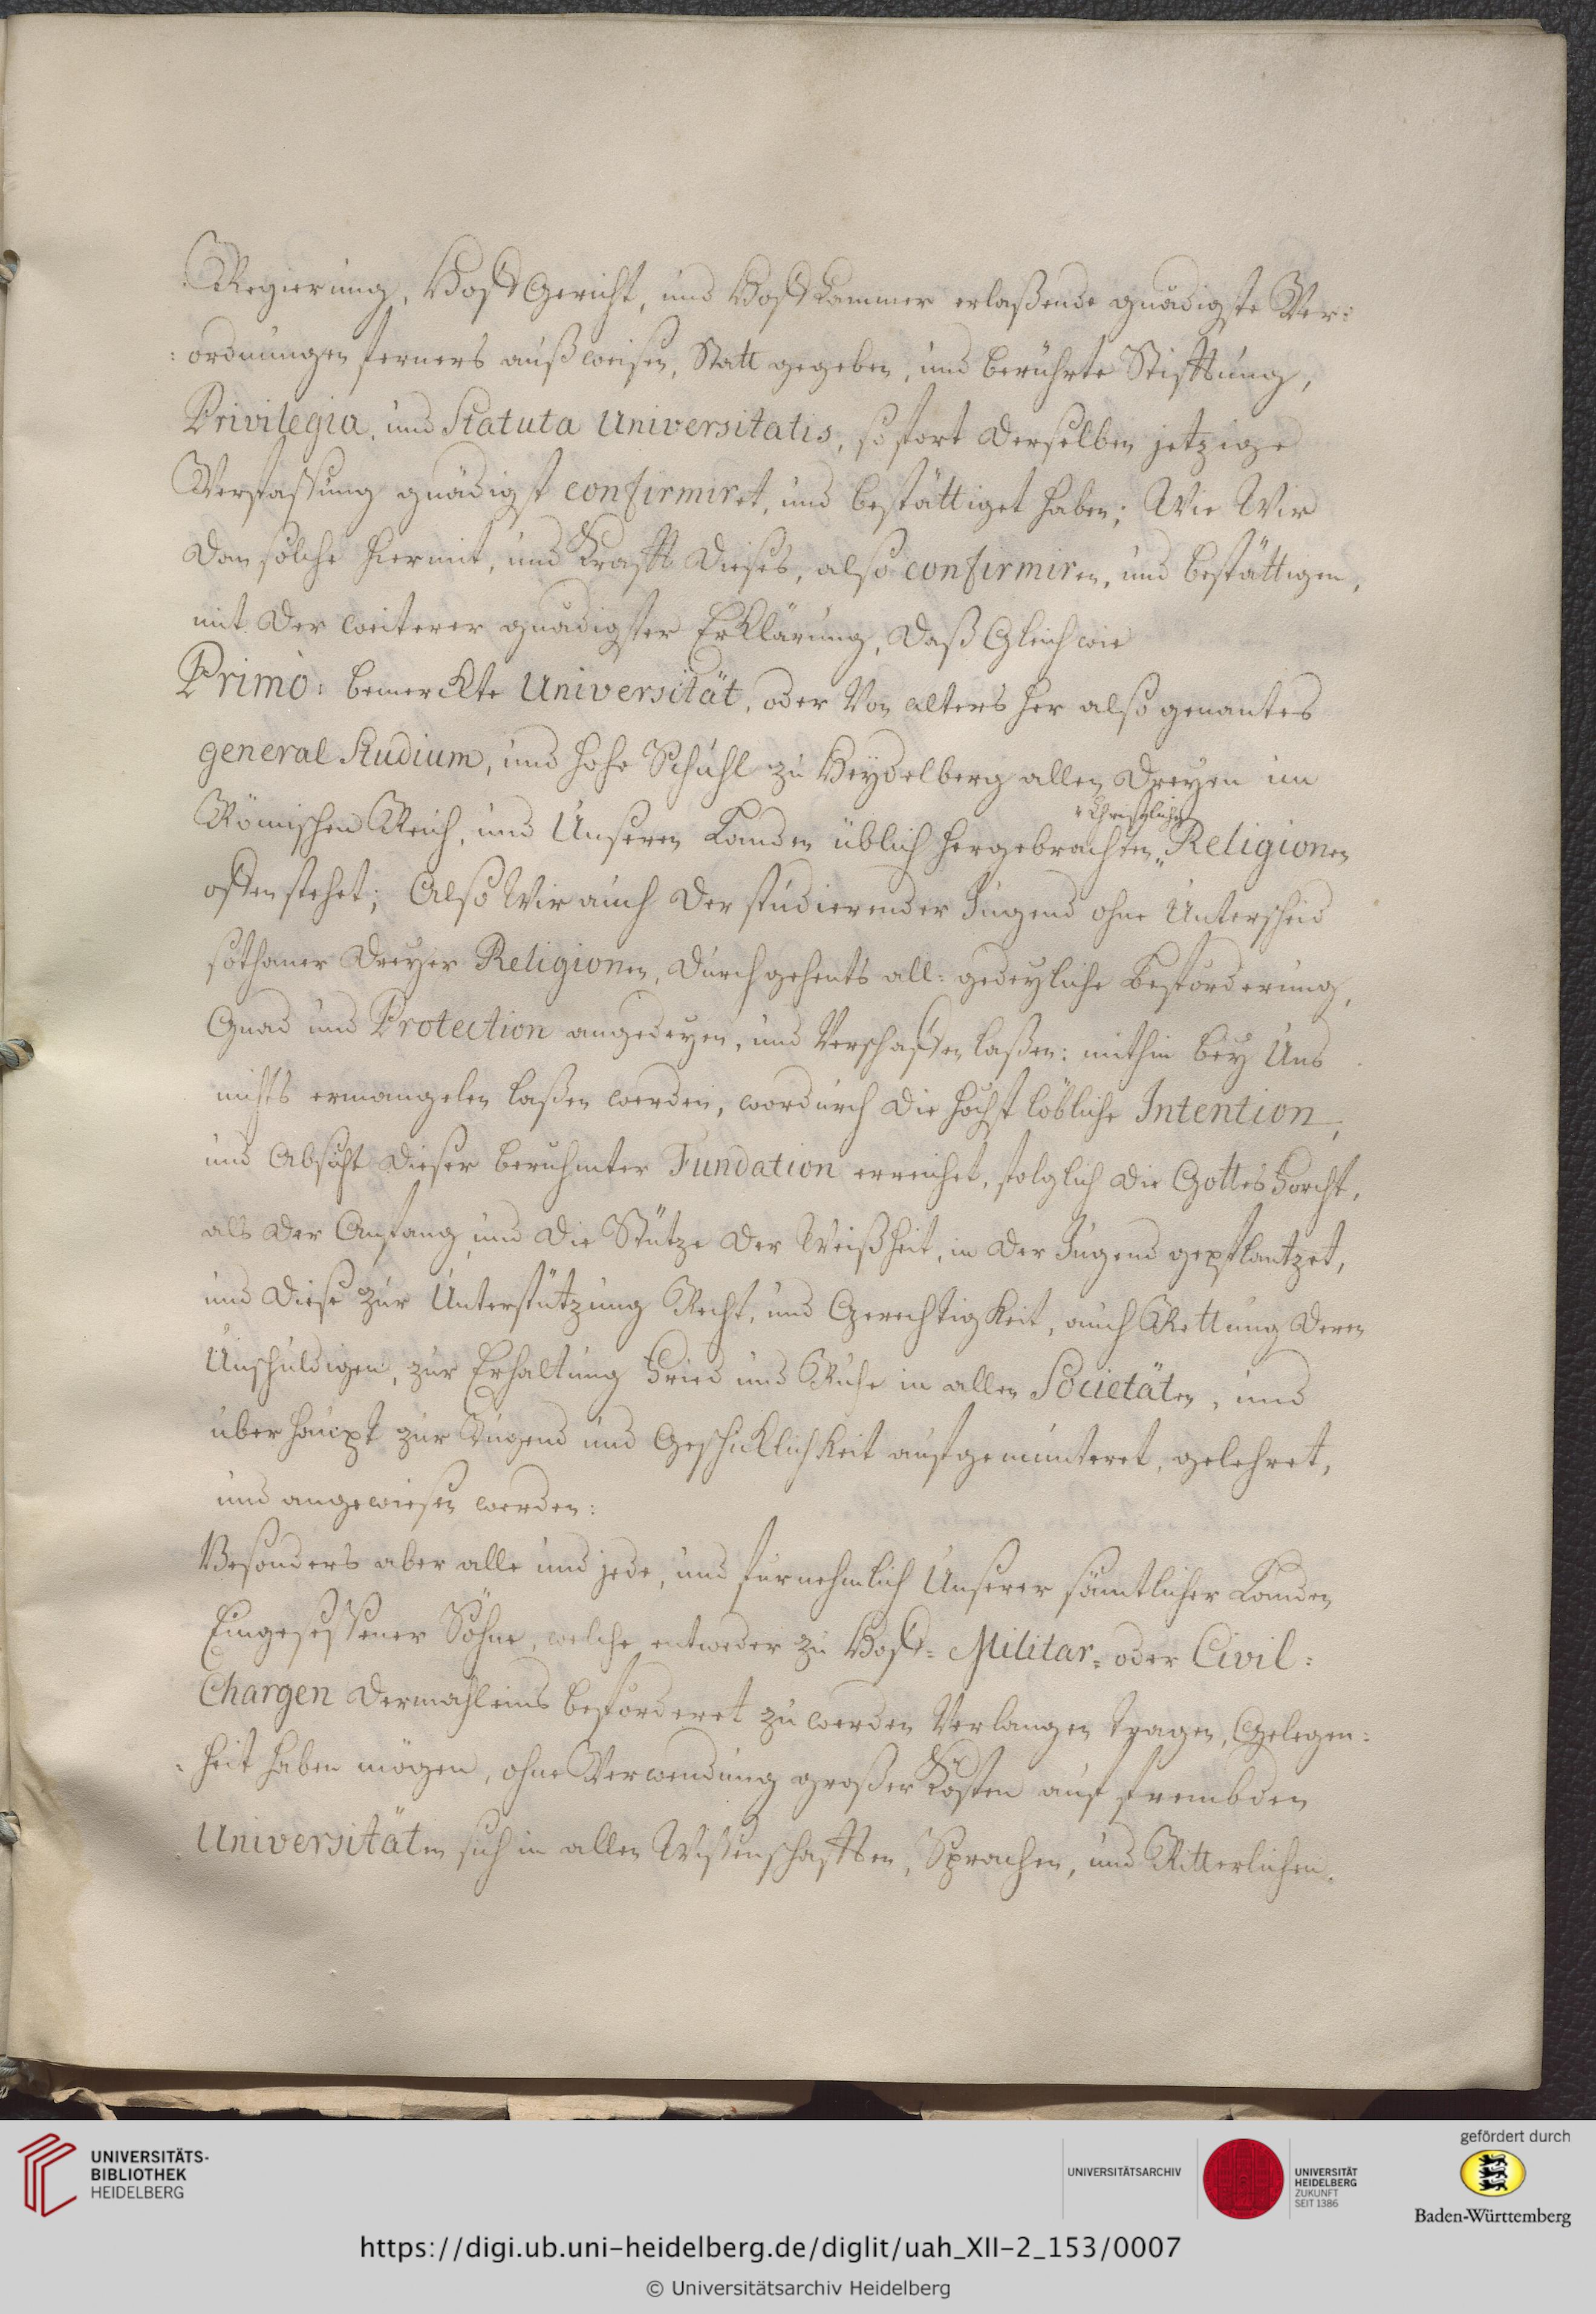 Regierung, HoffGericht, und HoffCammer erlaßende gnädigste Ver:
:ordnungen ferners außweisen, Statt gegeben, und berührte Stifftung,
Privilegia, und Statuta Universitatis, sofort derselben jetzige
Verfassung gnädigst confirmiret, und bestättiget haben; Wie Wir
dan solche hiermit, und Krafft dieses, also confirmiren, und bestättigen,
mit der weiterer gnädigster Erklärung, daß Gleich wie
Primò: bemerckte Universität, oder Von alters her also genantes
general Studium, und hohe Schuhl zu Heydelberg allen dreyen im
Römischen Reich, und Unseren Landen üblich hergebrachten " Religionen
" Christlichen
offen stehet; Also Wir auch der studierender Jugend ohne Unterscheid
sothaner dreyer Religionen, durchgehents all: gedeyliche beförderung,
Gnad und Protection angedeyen, und Verschaffen laßen: mithin bey Uns
nichts ermangelen laßen werden, wordurch die höchst löbliche Intention,
und Absicht dieser berühmter Fundation erreichet, folglich die Gottes Forcht,
als der Anfang und die Stütze der Weißheit, in der Jugend gepflantzet,
und diese zur Unterstützung Recht, und Gerechtigkeit, auch Rettung deren
Unschuldigen, zur Erhaltung Fried und Ruhe in allen Societäten, und
überhaupt zur Tugend und Geschicklichkeit aufgemunteret, gelehret,
und angewiesen werden:
Besonders aber alle und jede, und fürnehmlich Unserer sämtlicher Landen
Eingesessener Söhne, welche entweder zu Hoff= Militar= oder Civil=
Chargen dermahleins beförderet zu werden Verlangen tragen, Gelegen:
:heit haben mögen, ohne Verwendung großer Kösten auf frembden
Universitäten sich in allen Wissenschafften, Sprachen, und Ritterlichen
UNIVERSITÄTS-
BIBLIOTHEK
HEIDELBERG
UNIVERSITÄTSARCHIV
UNIVERSITÄT
HEIDELBERG
ZUKUNFT
SEIT 1386
gefördert durch
Baden-Württemberg
https://digi.ub.uni-heidelberg.de/diglit/uah_XII-2_153/0007
© Universitätsarchiv Heidelberg